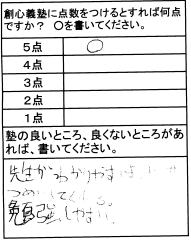 創心義塾に点数をつけるとすれば何点
ですか？ 〇を書いてください。
5点 〇
4点
3点
2点
1点
塾の良いところ、良くないところがあ
れば、書いてください。
先生が わかりやすい
つめ してくれる。
勉強 しやすい。